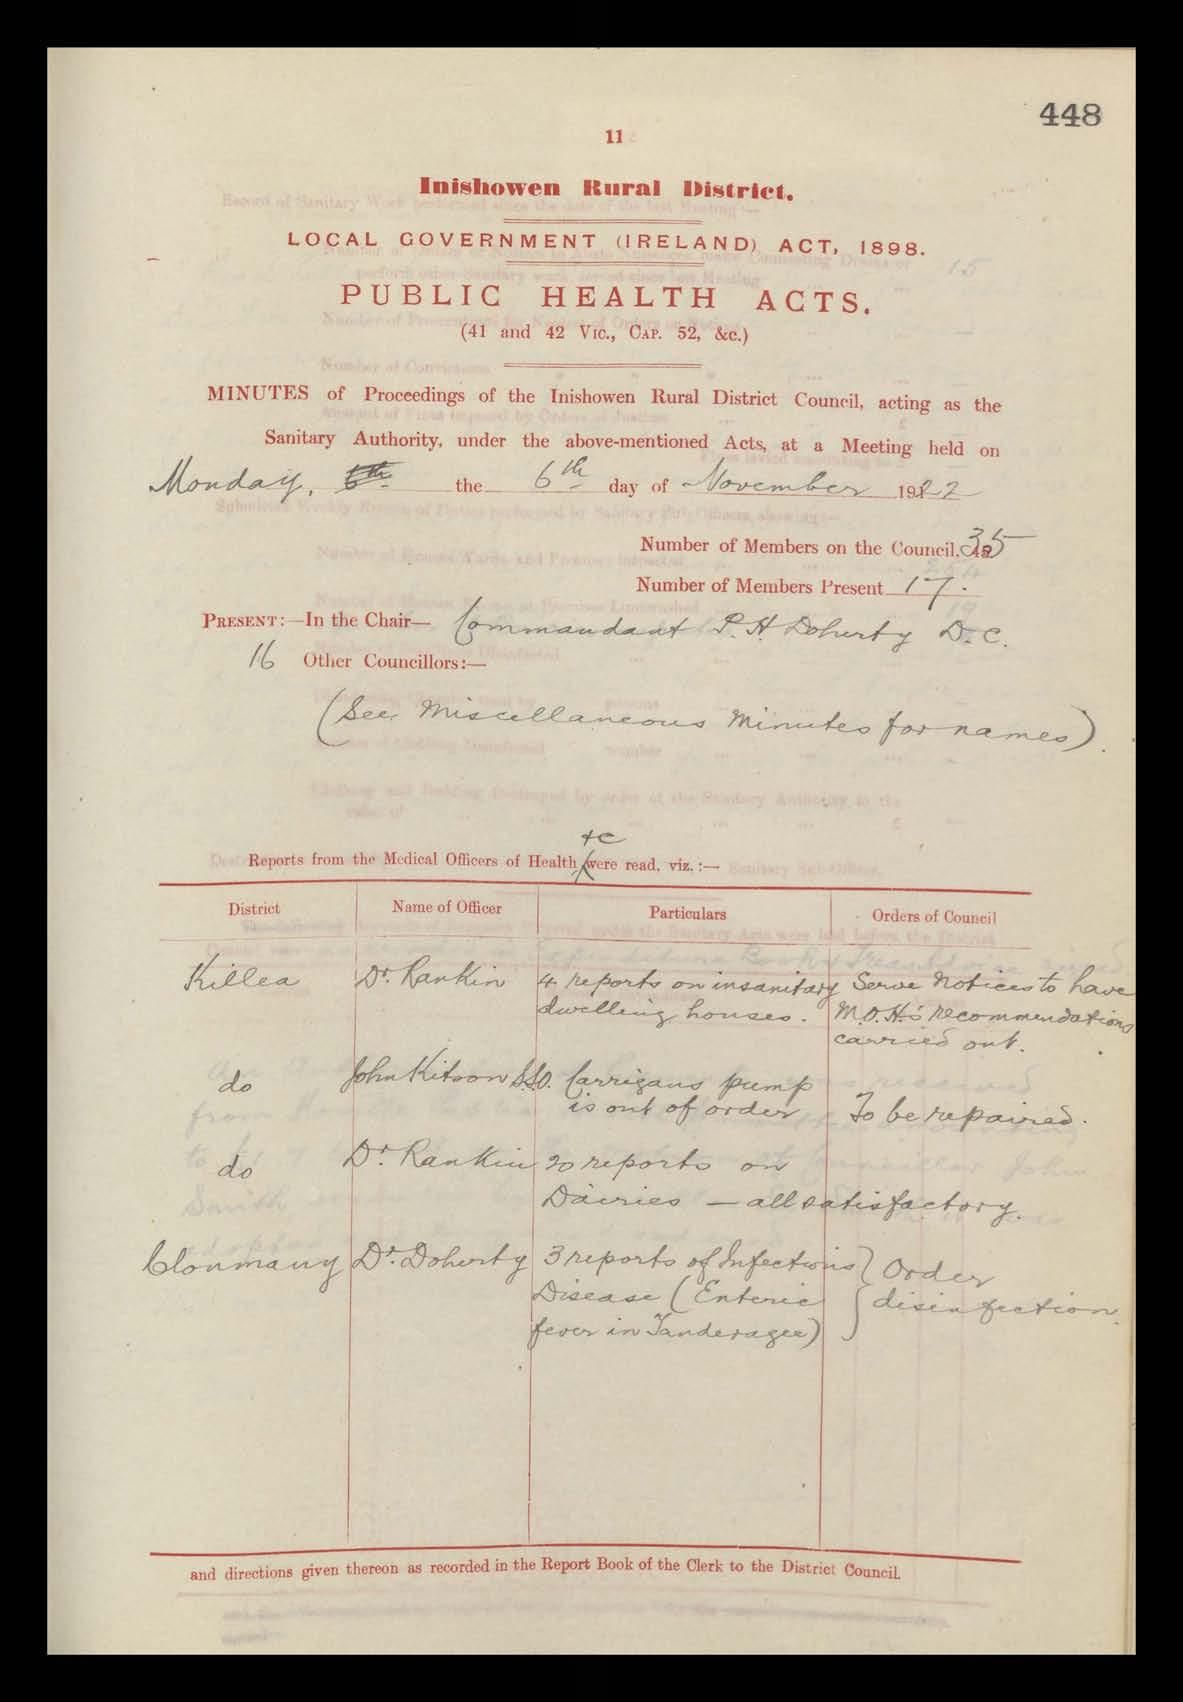 448
11
Inishowen Rural District.
LOCAL GOVERNMENT (IRELAND) ACT, 1898.
PUBLIC HEALTH ACTS.
(41 and 42 Vic., Cap. 52, &c.)
MINUTES of Proceedings of the Inishowen Rural District Council, acting as the
Sanitary Authority, under the above-mentioned Acts, at a Meeting held on
Monday, 6th the 6th day of November 1922
Number of Members on the Council, 35
Number of Members Present 17.
PRESENT:—In the Chair— Commandant P. H. Doherty D. C.
16 Other Councillors:—
(See Miscellaneous Minutes for names).
&c
Reports from the Medical Officers of Health were read, viz.:—
District Name of Officer Particulars Orders of Council
Killea Dr. Rankin 4 reports on insanitary Serve Notices to have
dwelling houses. M.O.H.s' recommendations
carried out.
do John Kitson S.S.O. Carrigans pump
is out of order To be repaired.
do Dr. Rankin 20 reports on
Dairies — all satisfactory.
Clonmany Dr. Doherty 3 reports of Infectious } Order
Disease (Enteric disinfection.
fever in Tanderagee)
and directions given thereon as recorded in the Report Book of the Clerk to the District Council.